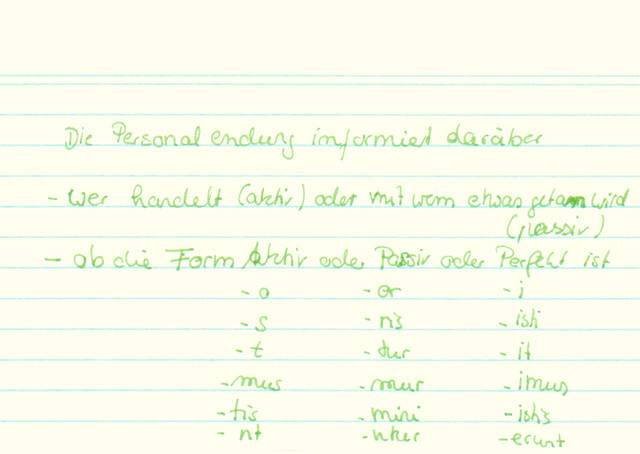 Die Personalendung informiert darüber
- wer handelt (aktiv) oder mit wem etwas getan wird
(passiv)
- ob die Form Aktiv oder Passiv oder Perfekt ist
- o - or - i
- s - ris - isti
- t - tur - it
- mus - mur - imus
- tis - mini - istis
- nt - ntur - erunt